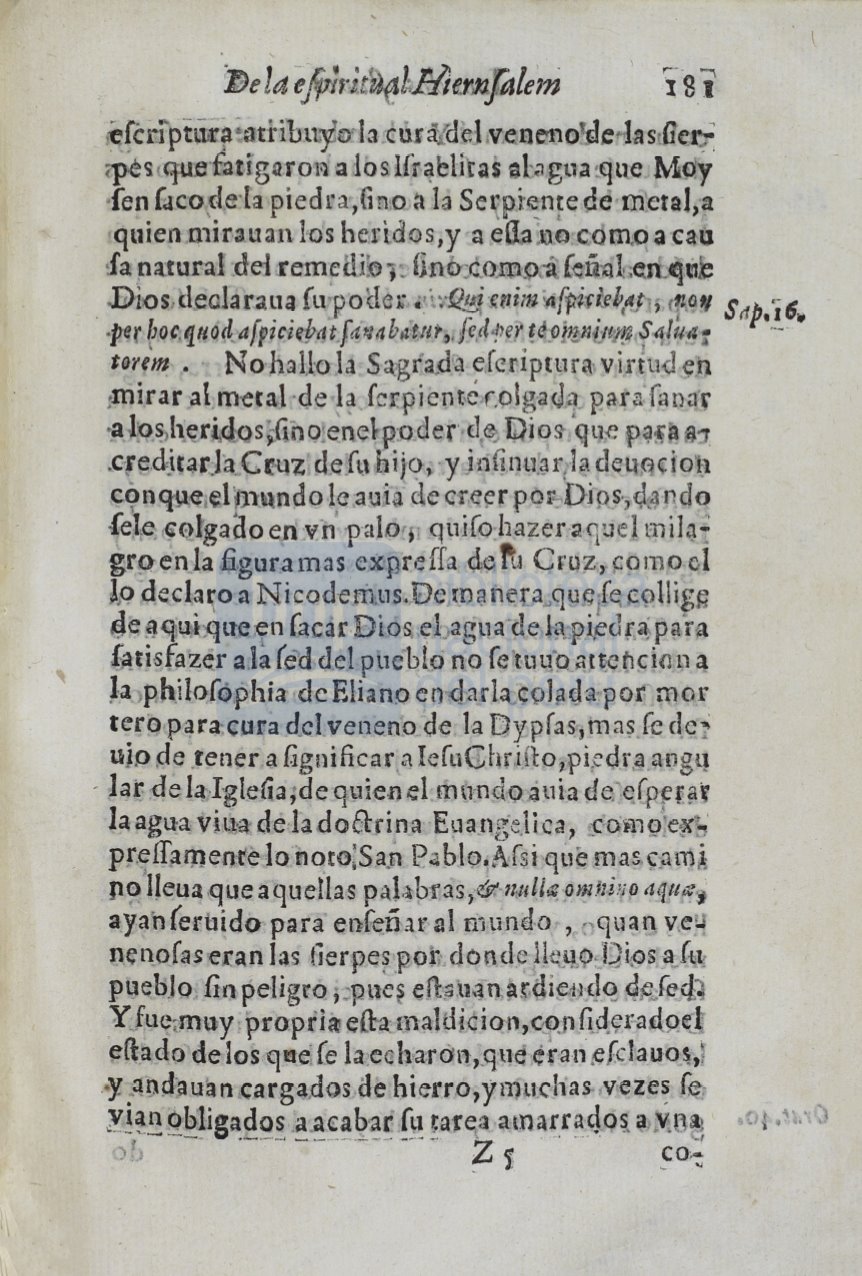 De la eſpiritual Hiernſalem 181
eſcriptura atribuyo la cura del veneno de las ſier-
pes que fatigaron a los Iſraelitas al agua que Moy
ſen ſaco de la piedra, ſino a la Serpiente de metal, a
quien mirauan los heridos, y a eſſa no como a cau
ſa natural del remedio, ſino como a ſeñal en que
Dios declaraua ſu poder. Qui enim aſpiciebat, non
Sap. 16.
per hoc quod aſpiciebat ſanabatur, ſed per te omnium Salua-
torem. No hallo la Sagrada eſcriptura virtud en
mirar al metal de la ſerpiente colgada para ſanar
a los heridos, ſino en el poder de Dios que para a-
creditar la Cruz de ſu hijo, y inſinuar la deuocion
con que el mundo le auia de creer por Dios, dando
ſele colgado en vn palo, quiſo hazer aquel mila-
gro en la figura mas expreſſa de ſu Cruz, como el
lo declaro a Nicodemus. De manera que ſe collige
de aqui que en ſacar Dios el agua de la piedra para
ſatisfazer a la ſed del pueblo no ſe tuuo attencion a
la philoſophia de Eliano en darla colada por mor
tero para cura del veneno de la Dypſas, mas ſe de-
uio de tener a ſignificar a Ieſu Chriſto, piedra angu
lar de la Igleſia, de quien el mundo auia de eſperar
la agua viua de la doctrina Euangelica, como ex-
preſſamente lo noto San Pablo. Aſsi que mas cami
no lleua que aquellas palabras, & nullæ omnino aquæ,
ayan ſeruido para enſeñar al mundo, quan ve-
nenoſas eran las ſierpes por donde lleuo Dios a ſu
pueblo ſin peligro, pues eſtauan ardiendo de ſed.
Y fue muy propria eſta maldicion, conſiderado el
eſtado de los que ſe la echaron, que eran eſclauos,
y andauan cargados de hierro, y muchas vezes ſe
vian obligados a acabar ſu tarea amarrados a vna
Z 5 co-